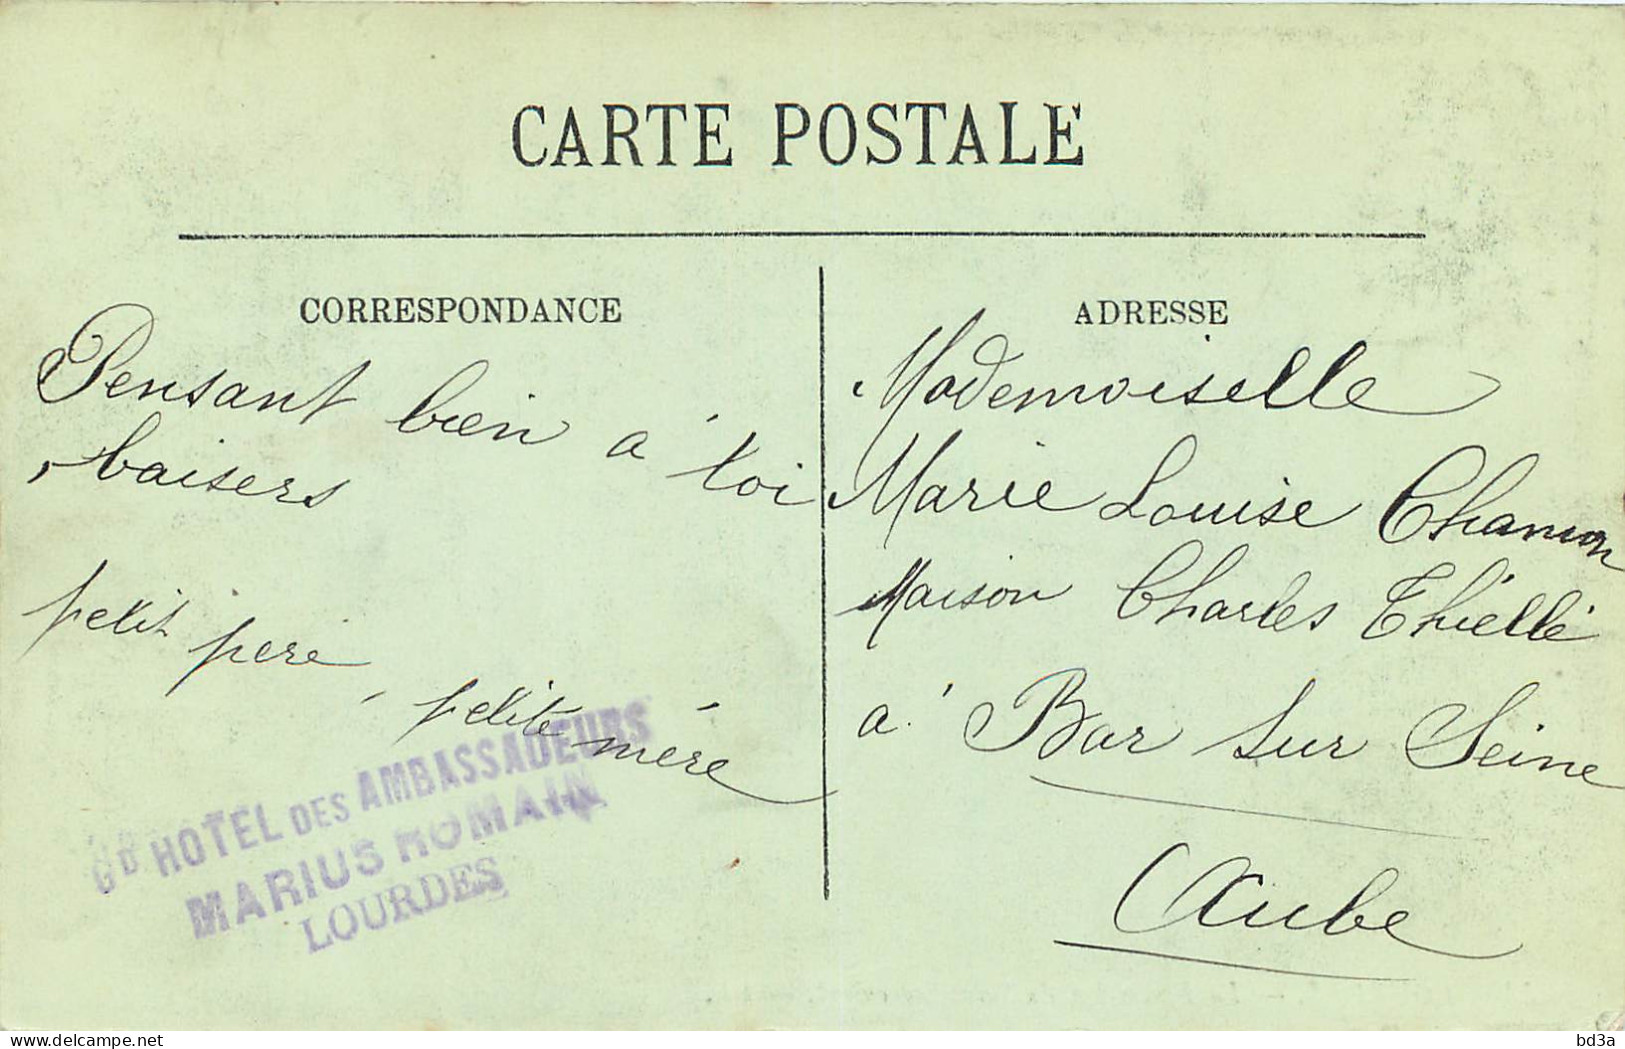 CARTE POSTALE
CORRESPONDANCE
Pensant bien à toi
baisers
petit père, petite mère
GD HOTEL DES AMBASSADEURS
MARIUS ROMAIN
LOURDES
ADRESSE
Mademoiselle
Marie Louise
Maison Charles
à Bar sur Seine
Aube
delcampe.net
bd3a